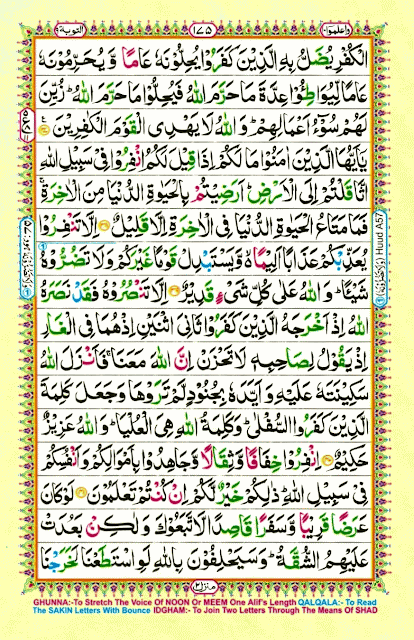 التوبة ٩
١٧٥
واعلموا ١٠
الْكُفْرِ يُضَلُّ بِهِ الَّذِيْنَ كَفَرُوْا يُحِلُّوْنَهٗ عَامًا وَّ يُحَرِّمُوْنَهٗ
عَامًا لِّيُوَاطِـُٔوْا عِدَّةَ مَا حَرَّمَ اللّٰهُ فَيُحِلُّوْا مَا حَرَّمَ اللّٰهُ ؕ زُيِّنَ
لَهُمْ سُوْٓءُ اَعْمَالِهِمْ ؕ وَاللّٰهُ لَا يَهْدِى الْقَوْمَ الْكٰفِرِيْنَ
يٰۤاَيُّهَا الَّذِيْنَ اٰمَنُوْا مَا لَكُمْ اِذَا قِيْلَ لَكُمُ انْفِرُوْا فِىْ سَبِيْلِ اللّٰهِ
اثَّاقَلْتُمْ اِلَى الْاَرْضِ ؕ اَرَضِيْتُمْ بِالْحَيٰوةِ الدُّنْيَا مِنَ الْاٰخِرَةِ ۚ
فَمَا مَتَاعُ الْحَيٰوةِ الدُّنْيَا فِى الْاٰخِرَةِ اِلَّا قَلِيْلٌ اِلَّا تَنْفِرُوْا
يُعَذِّبْكُمْ عَذَابًا اَلِيْمًا ۙ وَّيَسْتَبْدِلْ قَوْمًا غَيْرَكُمْ وَلَا تَضُرُّوْهُ
شَيْـًٔا ؕ وَاللّٰهُ عَلٰى كُلِّ شَىْءٍ قَدِيْرٌ اِلَّا تَنْصُرُوْهُ فَقَدْ نَصَرَهُ
اللّٰهُ اِذْ اَخْرَجَهُ الَّذِيْنَ كَفَرُوْا ثَانِىَ اثْنَيْنِ اِذْ هُمَا فِى الْغَارِ
اِذْ يَقُوْلُ لِصَاحِبِهٖ لَا تَحْزَنْ اِنَّ اللّٰهَ مَعَنَا ۚ فَاَنْزَلَ اللّٰهُ
سَكِيْنَتَهٗ عَلَيْهِ وَ اَيَّدَهٗ بِجُنُوْدٍ لَّمْ تَرَوْهَا وَجَعَلَ كَلِمَةَ
الَّذِيْنَ كَفَرُوا السُّفْلٰى ؕ وَكَلِمَةُ اللّٰهِ هِىَ الْعُلْيَا ؕ وَاللّٰهُ عَزِيْزٌ
حَكِيْمٌ اِنْفِرُوْا خِفَافًا وَّثِقَالًا وَّجَاهِدُوْا بِاَمْوَالِكُمْ وَاَنْفُسِكُمْ
فِىْ سَبِيْلِ اللّٰهِ ؕ ذٰلِكُمْ خَيْرٌ لَّكُمْ اِنْ كُنْتُمْ تَعْلَمُوْنَ لَوْ كَانَ
عَرَضًا قَرِيْبًا وَّ سَفَرًا قَاصِدًا لَّاتَّبَعُوْكَ وَ لٰكِنْۢ بَعُدَتْ
عَلَيْهِمُ الشُّقَّةُ ؕ وَ سَيَحْلِفُوْنَ بِاللّٰهِ لَوِ اسْتَطَعْنَا لَخَرَجْنَا
Huud A57
منزل ٢
GHUNNA:-To Stretch The Voice Of NOON Or MEEM One Alif's Length QALQALA:- To Read
The SAKIN Letters With Bounce IDGHAM:- To Join Two Letters Through The Means Of SHAD